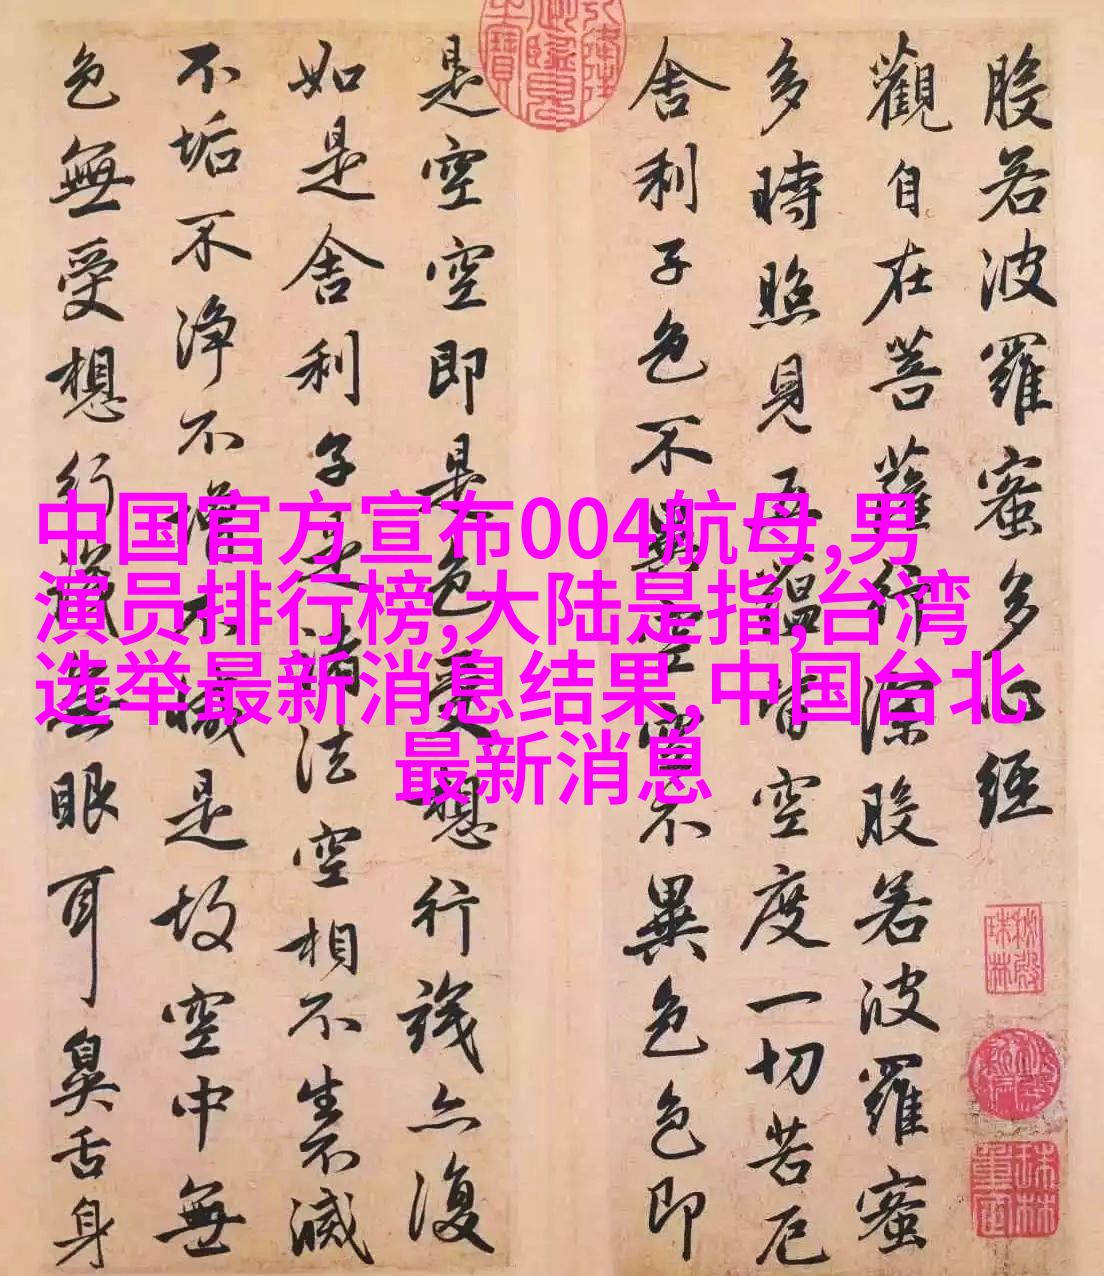 般若波羅蜜多心經
觀自在菩薩行深般若波羅蜜
多時照見五蘊皆空度一切苦厄
舍利子色不異空空不異色色即
是空空即是色受想行識亦復
如是舍利子是諸法空相不生不滅
不垢不淨不增不減是故空中無
色無受想行識無眼耳鼻舌身
中国官方宣布004航母,男
演员排行榜,大陆是指,台湾
选举最新消息结果,中国台北
最新消息